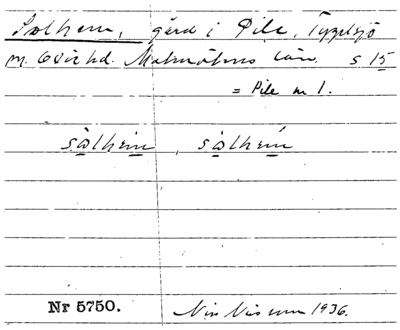 Solhem, gård i Pile, Tygelsjö
m. Oxie hd. Malmöhus län. s 15
= Pile nr 1.
sòlhèm, sòlhèm
Nr 5750. Nils Nilsson 1936.